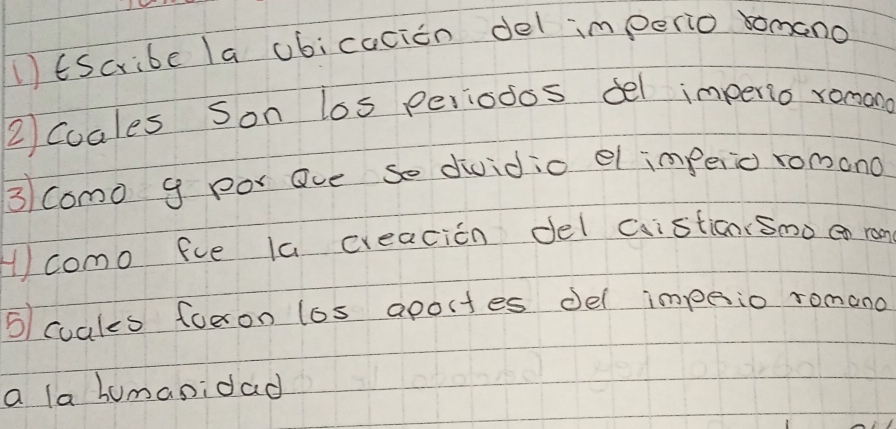 1) Escribe la ubicación del imperio romano
2) Cuales Son los periodos del imperio romano
3) Como y por que se dividio el imperio romano
4) como fue la creación del cristianismo en roma
5) cuales fueron los aportes del imperio romano
a la humanidad